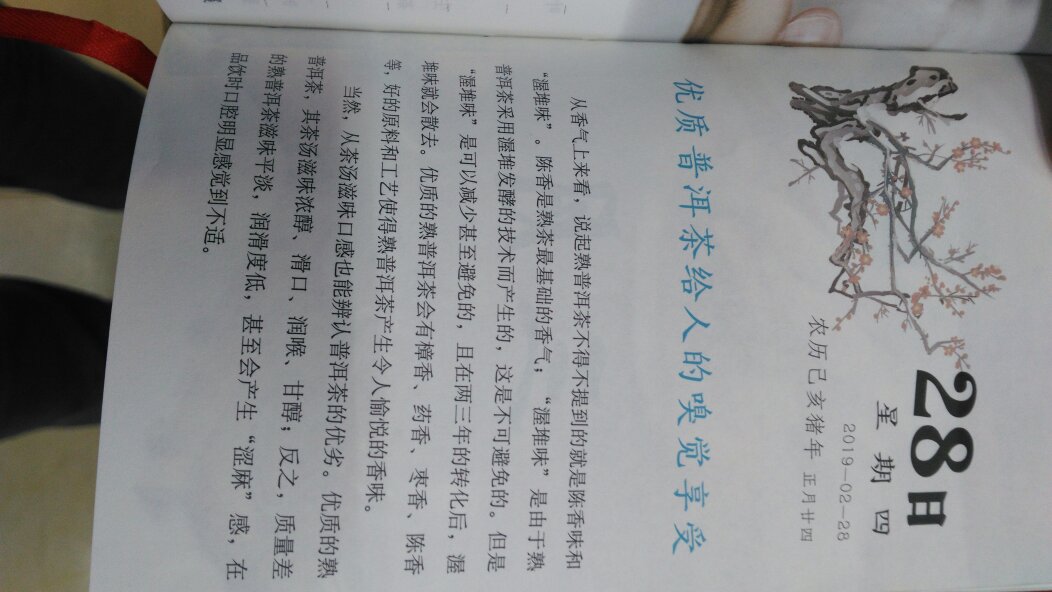 28日
星期四
2019-02-28
农历己亥猪年 正月廿四
优质普洱茶给人的嗅觉享受
从香气上来看，说起熟普洱茶不得不提到的就是陈香味和
“渥堆味”。陈香是熟茶最基础的香气；“渥堆味”是由于熟
普洱茶采用渥堆发酵的技术而产生的，这是不可避免的。但是
“渥堆味”是可以减少甚至避免的，且在两三年的转化后，渥
堆味就会散去。优质的熟普洱茶会有樟香、药香、枣香、陈香
等，好的原料和工艺使得熟普洱茶产生令人愉悦的香味。
当然，从茶汤滋味口感也能辨认普洱茶的优劣。优质的熟
普洱茶，其茶汤滋味浓醇、滑口、润喉、甘醇；反之，质量差
的熟普洱茶滋味平淡，润滑度低，甚至会产生“涩麻”感，在
品饮时口腔明显感觉到不适。